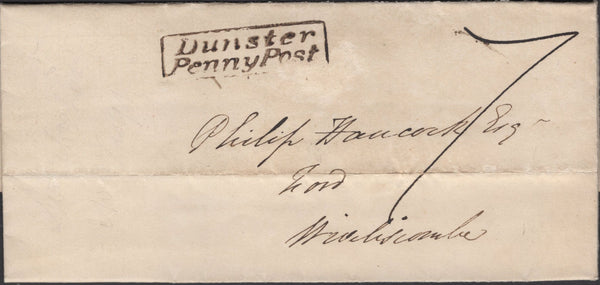 Dunster
Penny Post
7
Philip Hancock Esqr
Ford
Wiveliscombe